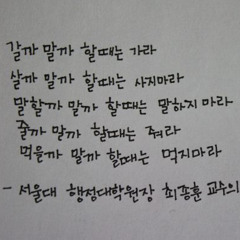 갈까 말까 할때는 가라
살까 말까 할때는 사지마라
말할까 말까 할때는 말하지 마라
줄까 말까 할때는 줘라
먹을까 말까 할때는 먹지마라
- 서울대 행정대학원장 최종훈 교수의